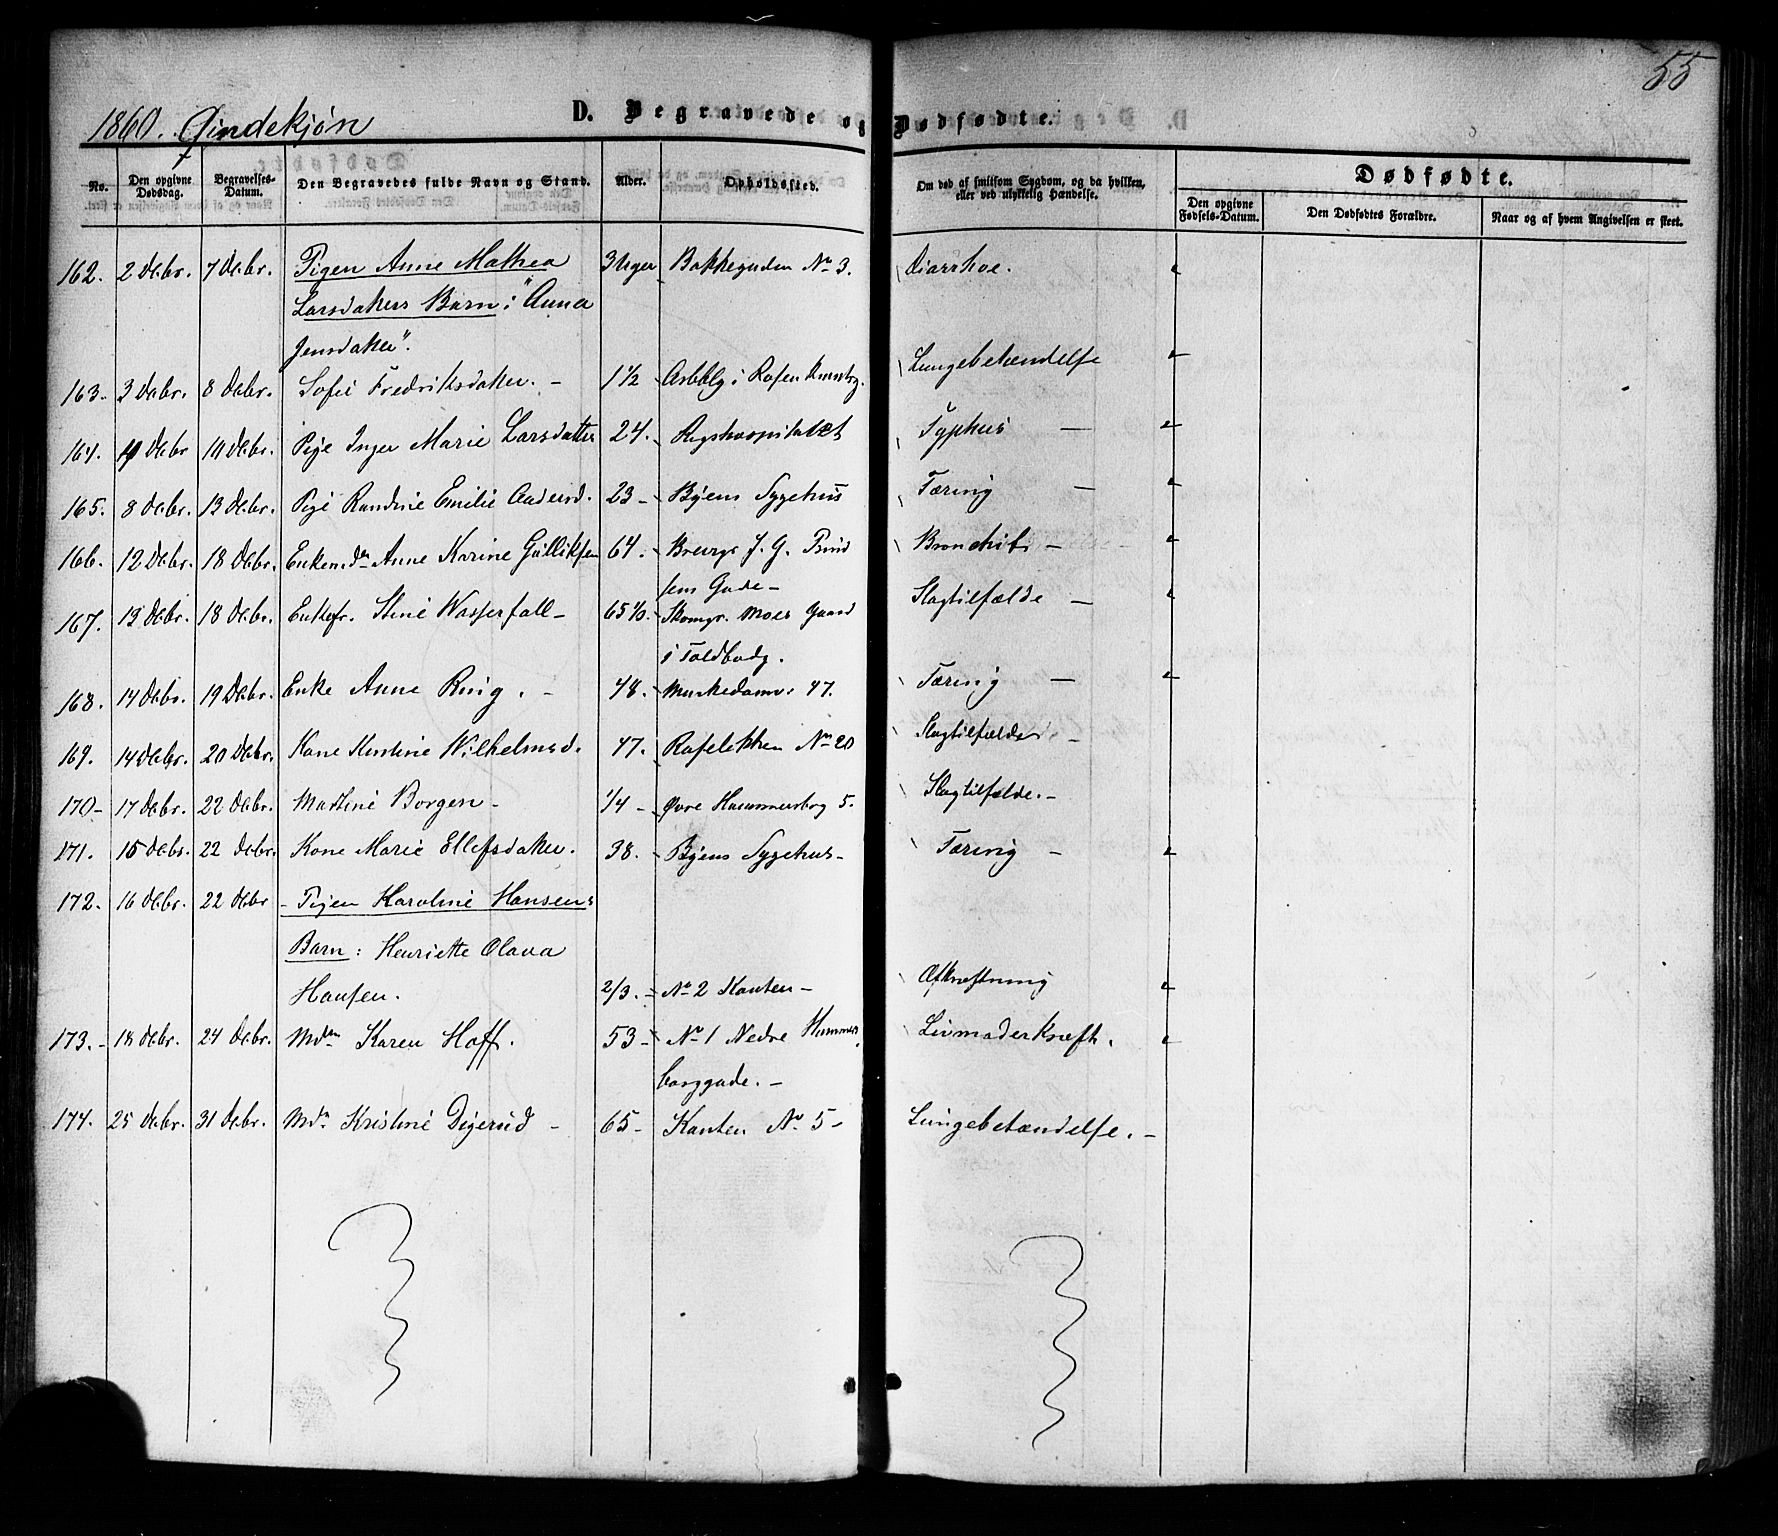 55
1860. Qindekjøn
D. Begravede og Dødfødte.
No.
Den opgivne Dødsdag.
Begravelses-Datum.
Den Begravedes fulde Navn og Stand.
Alder.
Opholdssted.
Om død af smitsom Sygdom, og da hvilken, eller ved ulykkelig Hændelse.
Dødfødte.
Den opgivne Fødsels-Datum.
Den Dødfødtes Forældre.
Naar og af hvem Angivelsen er skeet.
162. 2 Debr. 7 Debr. Pigen Anne Mathea 3 Uger Bakkegaden No 3. Diarrhoe.
Larsdatters Barn: "Anna
Jensdatter".
163. 3 Debr. 8 Debr. Sofie Fredriksdatter. 1½ i Lungebetændelse
164. Debr 10 Debr. Pige Inger Marie Larsdatter 24. Rigshospitalet Typhus
165. 8 Debr. 13 Debr. Pige Randine Emilie Andersd. 23 Byens Sygehus Tæring
166. 12 Debr. 18 Debr. Anne Karine Gulliksen 64. J. G. Bronchit
sens Gade
167. 13 Debr. 18 Debr. Enkefr. Stine Wasserfall 65 Skomgr. Moes Gaard Slagtilfælde
i Toldbodg.
168. 14 Debr. 19 Debr. Enke Anne Ring. 48. 47. Tæring
169. 14 Debr. 20 Debr. Kone Kirstine Wilhelmsd. 47. Rofeløkken No 20 Slagtilfælde
170 17 Debr. 22 Debr. Martine Borgen 1/4 Øvre Hammersborg 5. Slagtilfælde.
171. 15 Debr. 22 Debr. Kone Marie Ellefsdatter. 38. Byens Sygehus Tæring
172. 16 Debr. 22 Debr Pigen Karoline Hansens
Barn: Henriette Olava
Hansen. 2/3. No 2 Kanten Afkræftning
173. 18 Debr. 24 Debr. Mdm Karen Hoff. 53 No 1 Nedre Hammers Livmoderkræft.
borggade.
174. 25 Debr. 31 Debr. Mdm Kristine Digerud 65 Kanten No 5 Lungebetændelse.